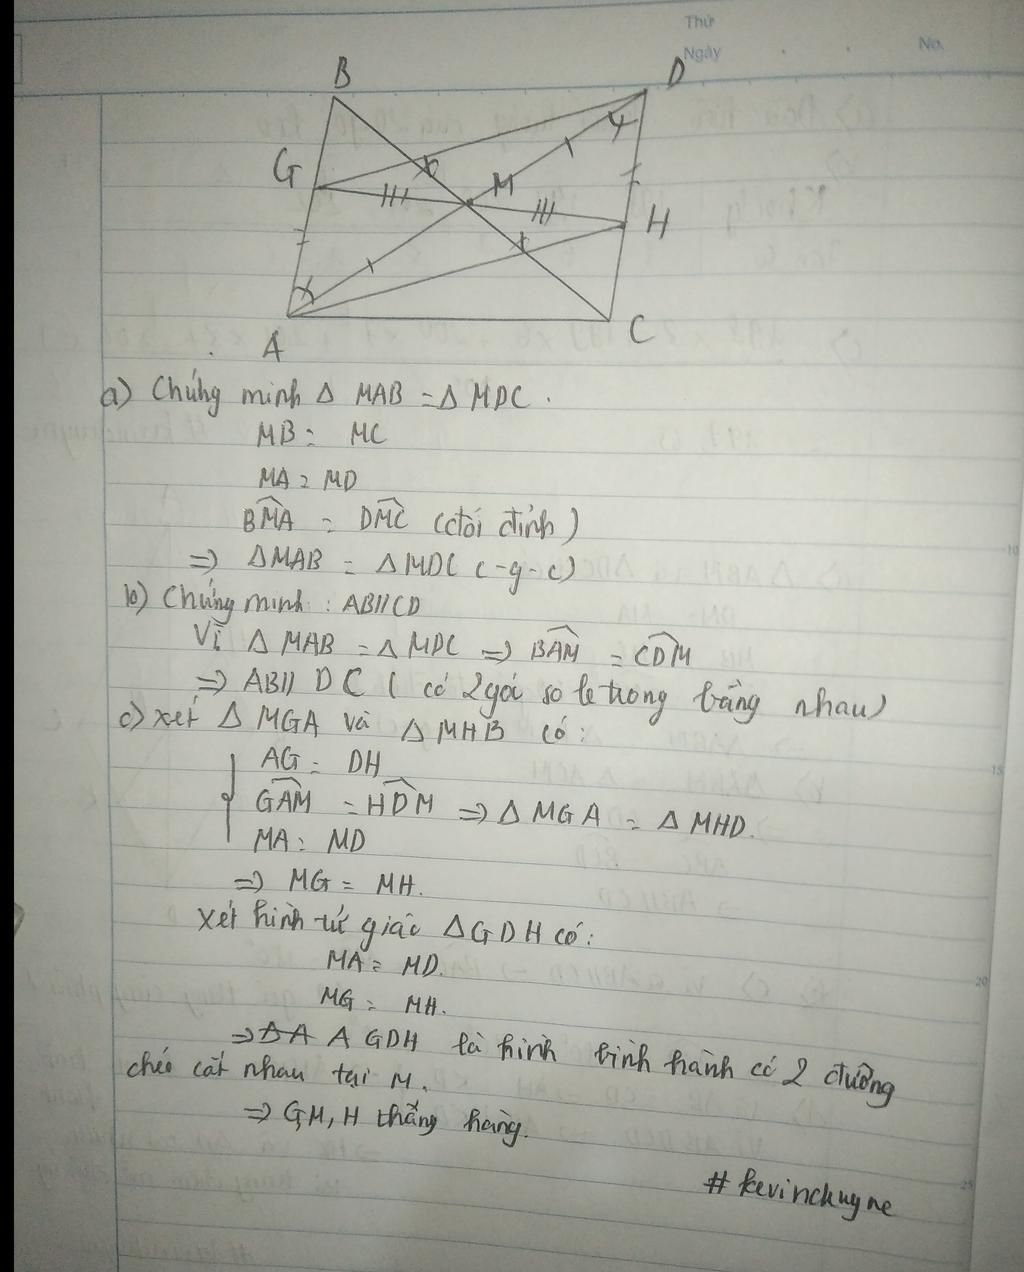 Thứ
Ngày
No.
B
D
G
M
H
A
C
a) Chứng minh Δ MAB = Δ MDC.
MB = MC
MA = MD
BMA = DMC (đối đỉnh)
=> ΔMAB = ΔMDC (-g-c)
b) Chứng minh: AB//CD
Vì Δ MAB = Δ MDC => BAM = CDM
=> AB// DC ( có 2 góc so le trong bằng nhau)
c) xét Δ MGA và Δ MHB có:
AG = DH
GAM = HDM => Δ MGA = Δ MHD.
MA = MD
=> MG = MH.
Xét hình tứ giác AGDH có:
MA = MD.
MG = MH.
=> A GDH là hình bình hành có 2 đường
chéo cắt nhau tại M.
=> G,M,H thẳng hàng.
# kevinchuyne